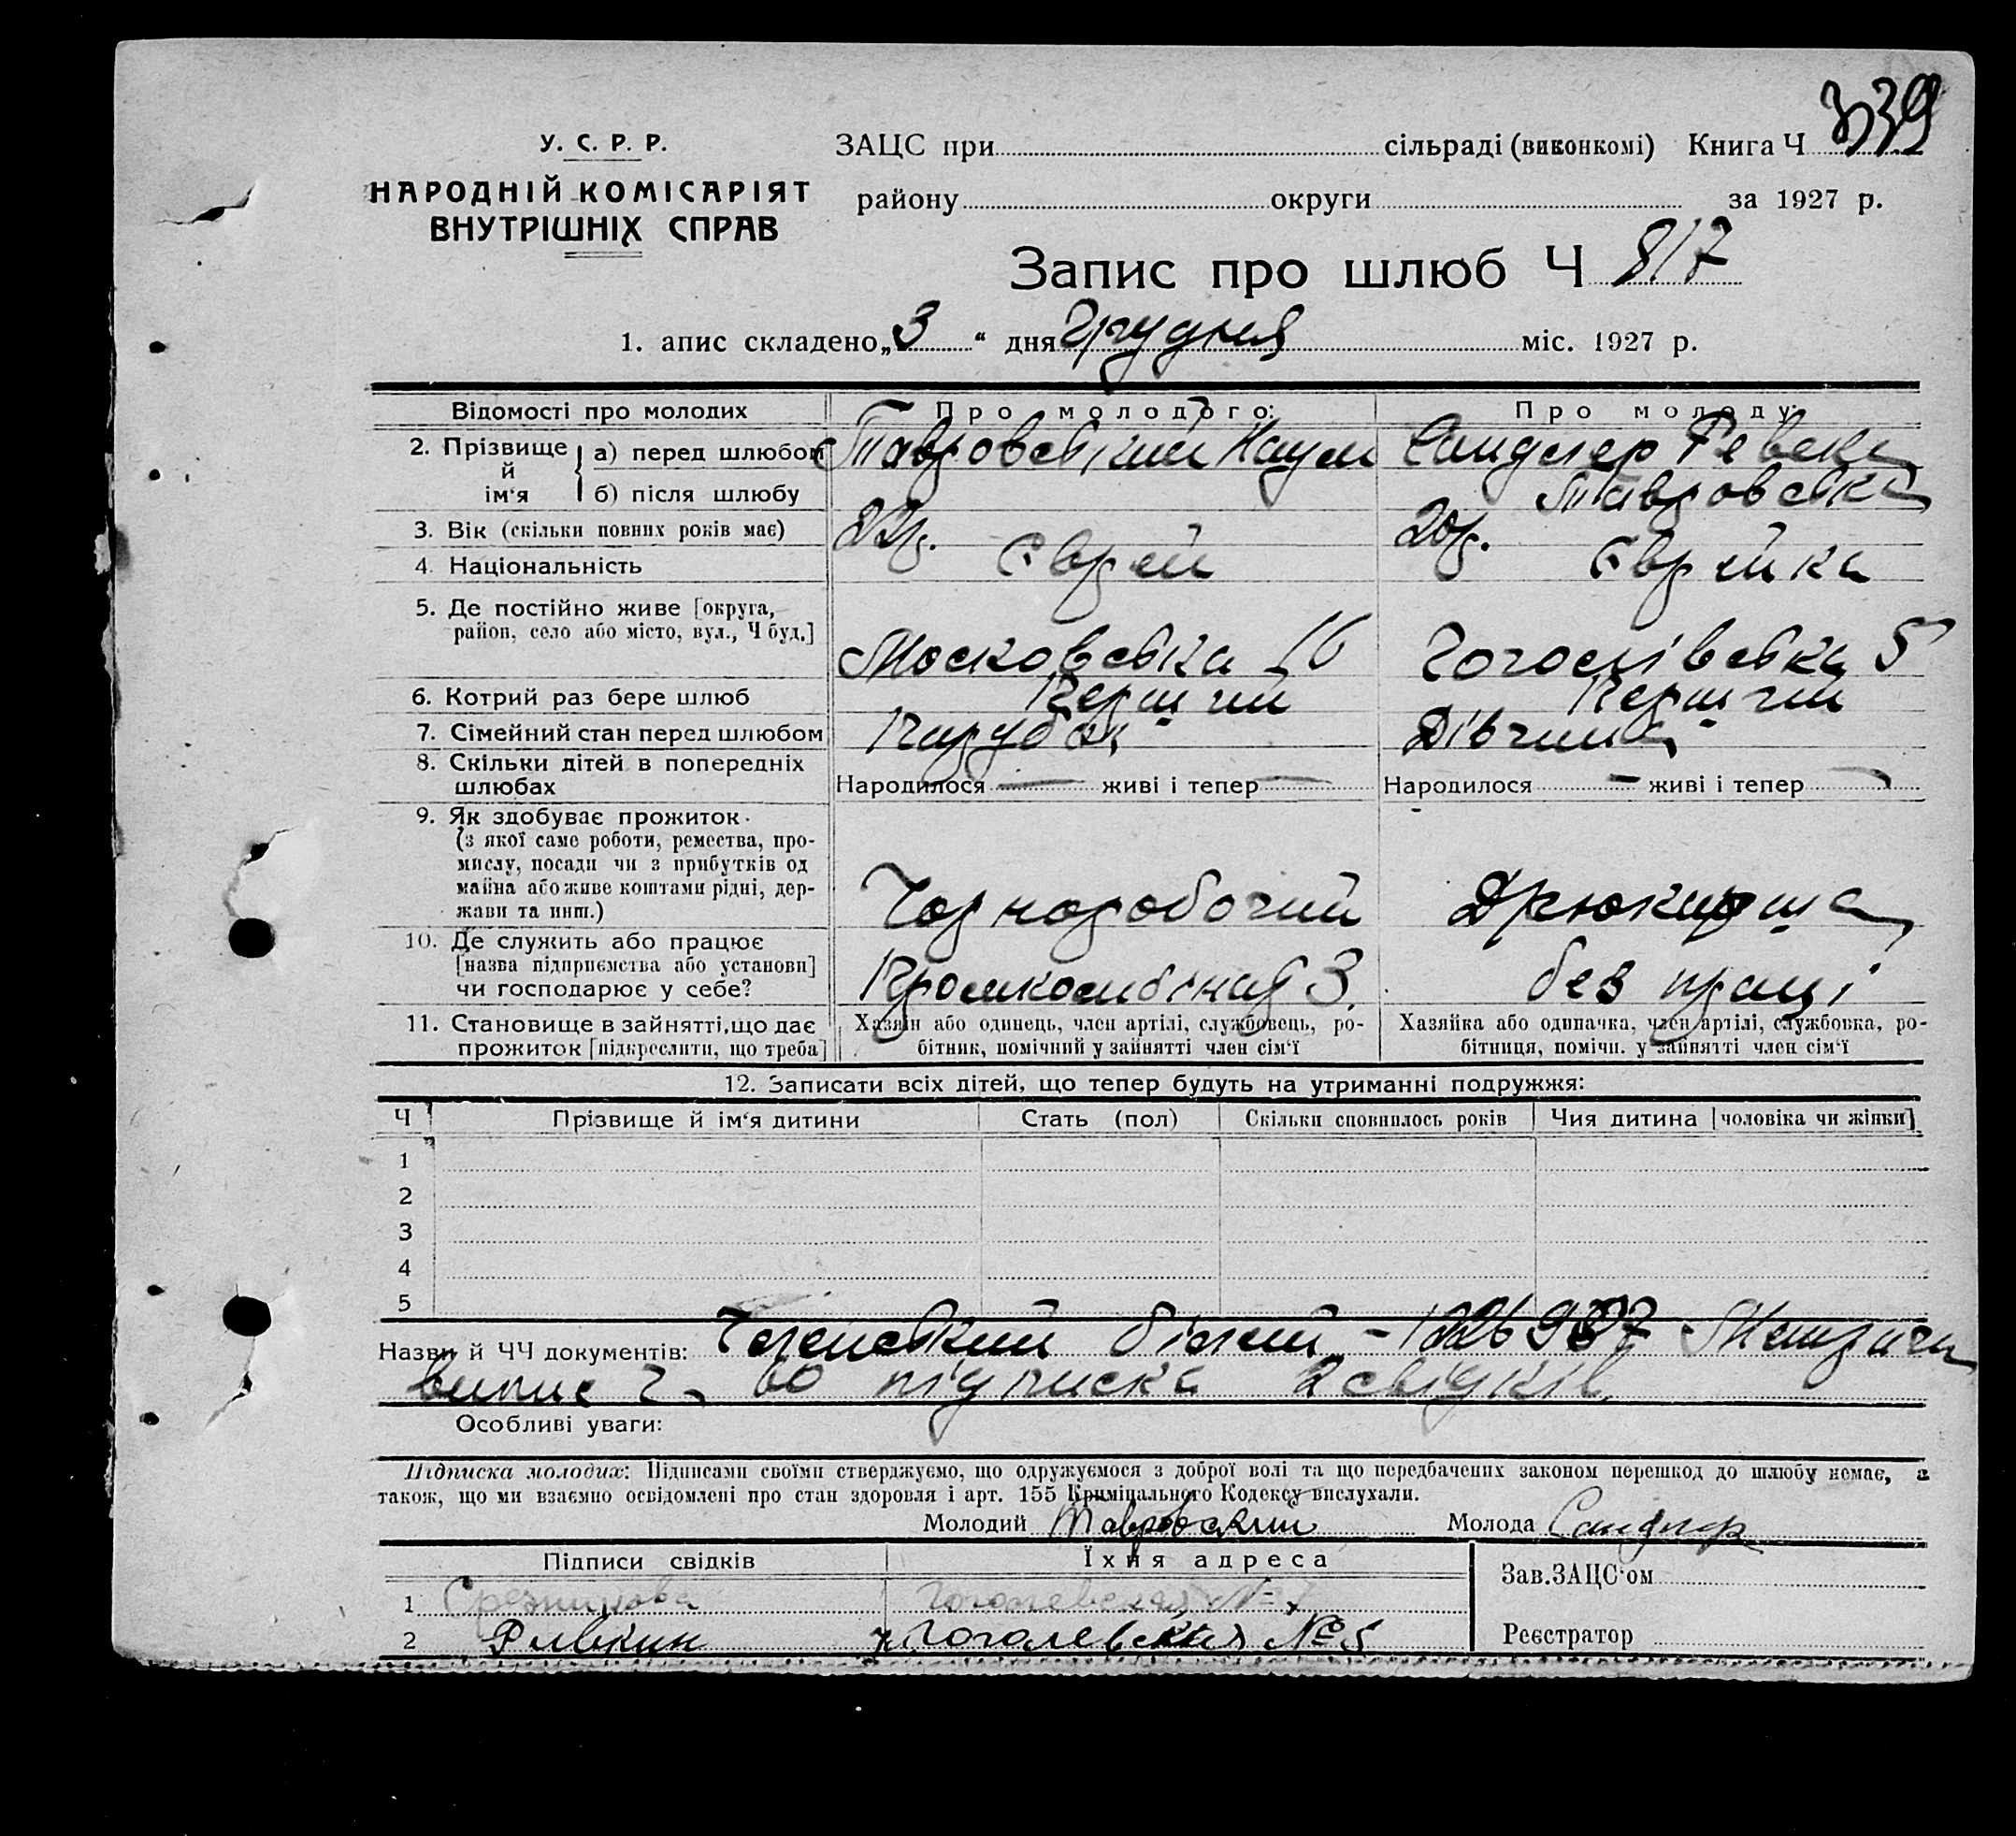 339
У. С. Р. Р.
НАРОДНІЙ КОМІСАРІЯТ
ВНУТРІШНІХ СПРАВ
ЗАЦС при сільраді (виконкомі) Книга Ч
району округи за 1927 р.
Запис про шлюб Ч 817
1. апис складено „3“ дня Грудня міс. 1927 р.
Відомості про молодих Про молодого: Про молоду:
2. Прізвище й ім'я а) перед шлюбом Тавровський Наум Сандлер Ревека
б) після шлюбу Тавровська
3. Вік (скільки повних років має) 22р. 20р.
4. Національність Єврей Єврейка
5. Де постійно живе [округа,
район, село або місто, вул., Ч буд.] Московська 16 Гоголівська 5
6. Котрий раз бере шлюб Перший Перший
7. Сімейний стан перед шлюбом Парубок Дівчина
8. Скільки дітей в попередніх
шлюбах Народилося — живі і тепер — Народилося — живі і тепер —
9. Як здобуває прожиток
(з якої саме роботи, ремества, про-
мислу, посади чи з прибутків од
майна або живе коштами рідні, дер-
жави та инш.) Чорноробочий
10. Де служить або працює
[назва підприємства або установи]
чи господарює у себе? без праці
11. Становище в зайнятті, що дає
прожиток [підкреслити, що треба]
Хазяїн або одинець, член артілі, службовець, ро-
бітник, помічний у зайнятті член сім'ї
Хазяйка або одиначка, член артілі, службовка, ро-
бітниця, помічн. у зайнятті член сім'ї
12. Записати всіх дітей, що тепер будуть на утриманні подружжя:
Ч Прізвище й ім'я дитини Стать (пол) Скільки сповнилось років Чия дитина [чоловіка чи жінки]
1
2
3
4
5
Назви й ЧЧ документів: Членський білет Метричн
випис Ч 60 підписка 2 свідків
Особливі уваги:
Підписка молодих: Підписами своїми стверджуємо, що одружуємося з доброї волі та що передбачених законом перешкод до шлюбу немає, а
також, що ми взаємно освідомлені про стан здоровля і арт. 155 Криміцального Кодексу вислухали.
Молодий Тавровский Молода Сандлер
Підписи свідків Їхня адреса Зав.ЗАЦС'ом
1 Гоголевская № 7
2 Ривкин Гоголевская № 5 Реєстратор